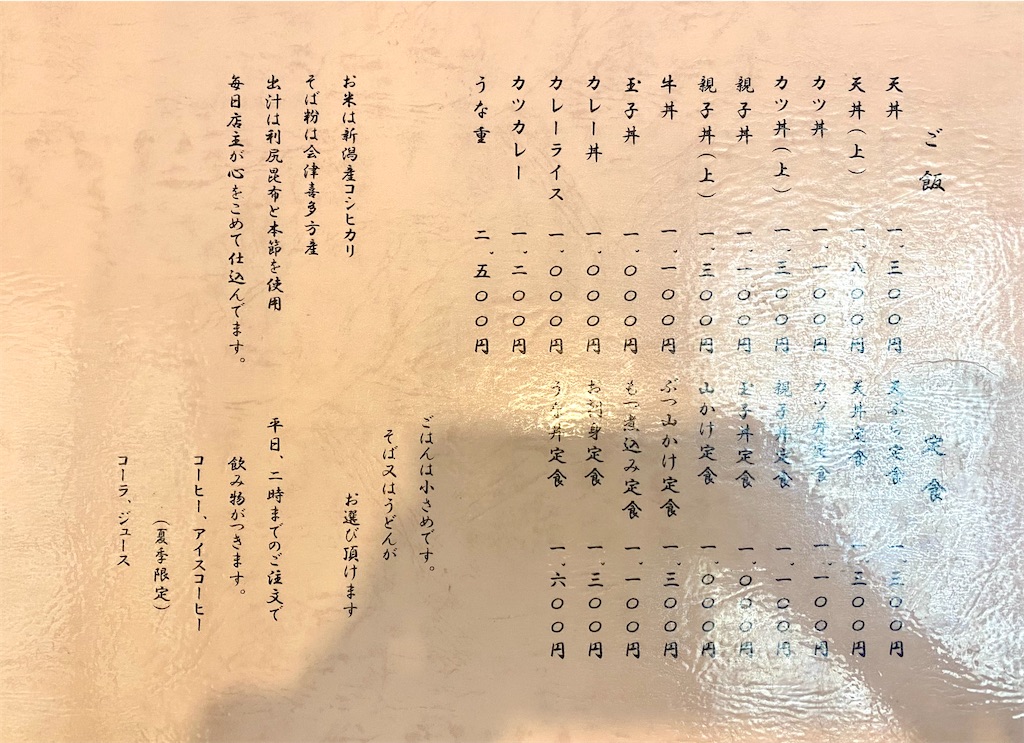 ご飯
天丼 一、三〇〇円
天丼（上） 一、八〇〇円
カツ丼 一、一〇〇円
カツ丼（上） 一、三〇〇円
親子丼 一、一〇〇円
親子丼（上） 一、三〇〇円
牛丼 一、一〇〇円
玉子丼 一、〇〇〇円
カレー丼 一、〇〇〇円
カレーライス 一、〇〇〇円
カツカレー 一、二〇〇円
うな重 二、五〇〇円
定食
天ぷら定食 一、三〇〇円
天丼定食 一、三〇〇円
カツ丼定食 一、一〇〇円
親子丼定食 一、一〇〇円
玉子丼定食 一、〇〇〇円
山かけ定食 一、〇〇〇円
ぶつ山かけ定食 一、三〇〇円
もつ煮込み定食 一、一〇〇円
お刺身定食 一、三〇〇円
うな丼定食 一、六〇〇円
お米は新潟産コシヒカリ
そば粉は会津喜多方産
出汁は利尻昆布と本節を使用
毎日店主が心をこめて仕込んでます。
ごはんは小さめです。
そば又はうどんが
お選び頂けます
平日、二時までのご注文で
飲み物がつきます。
コーヒー、アイスコーヒー
（夏季限定）
コーラ、ジュース